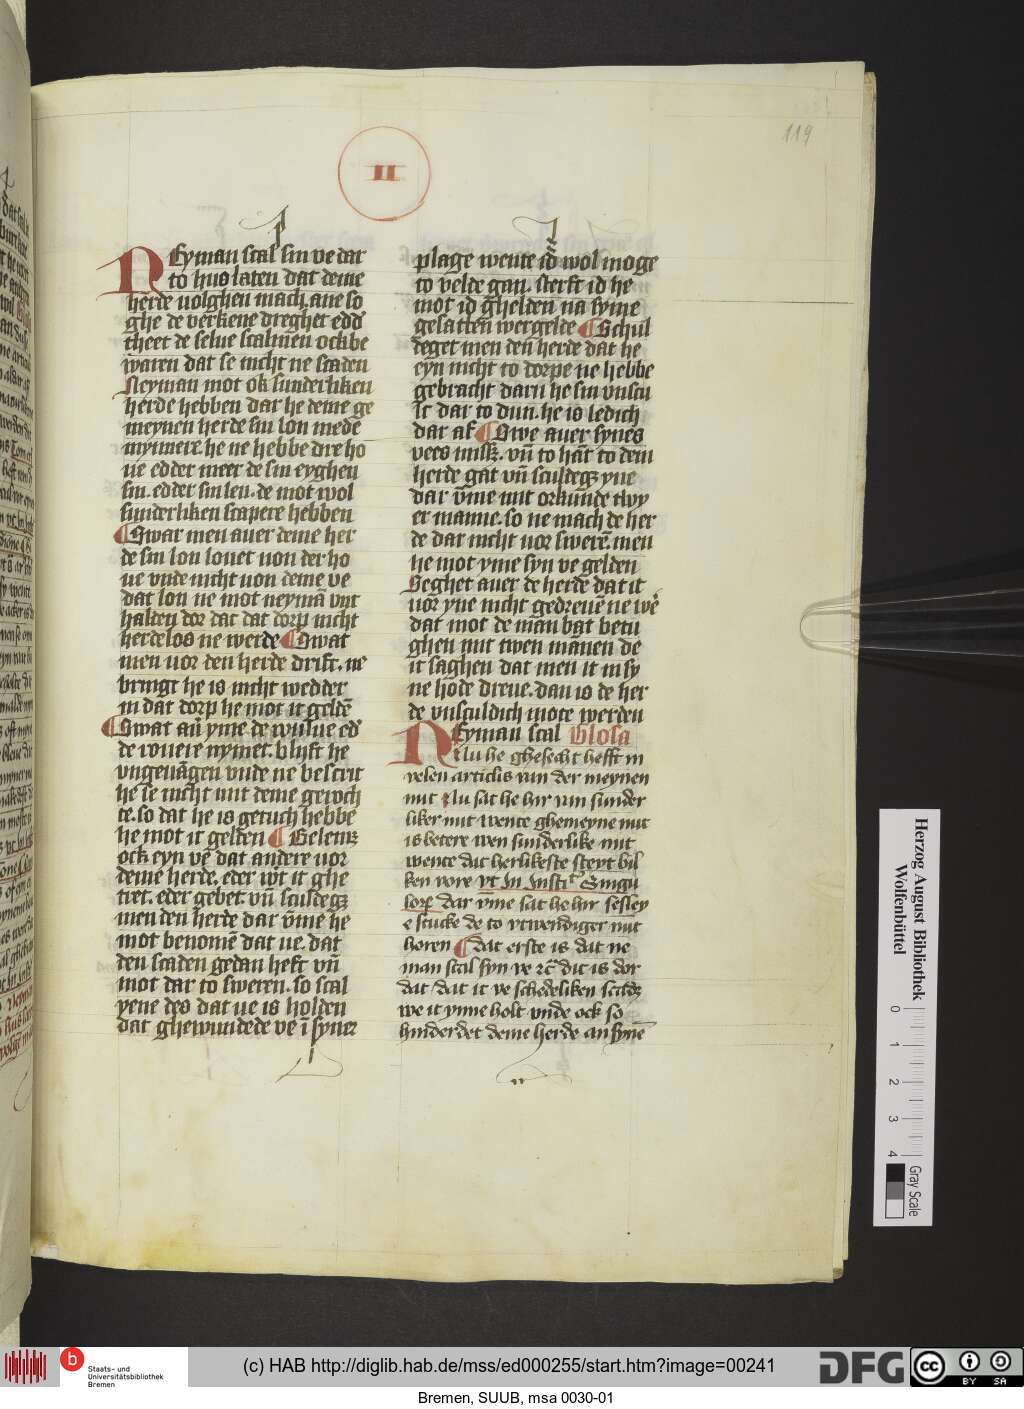 119
II
Neyman scal sin ve dar
to hus laten dat deme
herde volghen mach. ane so
ghe de verkene dreghet edd
theet de selue scalmen ock be
waren dat se nicht ne scaden
Neyman mot ok sunderliken
herde hebben dar he deme ge
meynen herde sin lon mede
mynnere. he ne hebbe dre ho
ue edder meer de sin eyghen
sin. edder sin len. de mot wol
sunderliken scapere hebben
Swar men auer deme her
de sin lon louet von der ho
ue vnde nicht von deme ve
dat lon ne mot neymā vnt
halden dor dat dat dorp nicht
herdelos ne werde Swat
men vor den herde drift. ne
bringt he is nicht wedder
in dat dorp he mot it geldē
Swat an yme de wulue edd
de rouere nymet. blyft he
vngeuāgen vnde ne bescriet
he se nicht mit deme geroch
te. so dat he is getuch hebbe
he mot it gelden Belemt
ock eyn vē dat andere vor
deme herde. eder wt it ghe
tret. eder gebet vñ sculdeget
men den herde dar vme he
mot benomē dat ve. dat
den scaden gedan heft vñ
mot dar to sweren. so scal
yene des dat ve is holden
dat ghewundede ve ī syner
plage wente id wol moge
to velde gan. sterft id he
mot id ghelden na syme
gesatten wergelde Schul
deget men den herde dat he
eyn nicht to dorpe ne hebbe
gebracht darn he sin vnscu
lt dar to dun. he is ledich
dar af Swe auer synes
vees misset. vñ to hāt to dem
herde gat vñ sculdeget yne
dar vme mit orkunde twy
er manne. so ne mach de her
de dar nicht vor swerē. men
he mot yme syn ve gelden
Seghet auer de herde dat it
vor yne nicht gedreuē ne wē
dat mot de man bat betu
ghen mit twen mānen de
it saghen dat men it in sy
ne hode dreue. dan is de her
de vnsculdich mote werden
Neyman scal Glosa
Nu he ghesecht hefft in
velen articlis van der meynen
nut Nu sat he hir van sunder
liker nut wente ghemeyne nut
is betere wen sunderlike nut
wente dat herlikeste steyt bil
ken vore vt in insti Singu
lorꝫ dar vme sat he hir sesley
e stucke de to vrwendiger nut
horen dat erste is dat ne
man scal syn ve rc̄ dit is dor
dat dat it ve schedeliken
we it ynne holt vnde ock so
hinderdet deme herde an synē
Herzog August Bibliothek
Wolfenbüttel
0 1 2 3 4
Gray Scale
b Staats- und
Universitätsbibliothek
Bremen
(c) HAB http://diglib.hab.de/mss/ed000255/start.htm?image=00241
DFG
cc BY SA
Bremen, SUUB, msa 0030-01